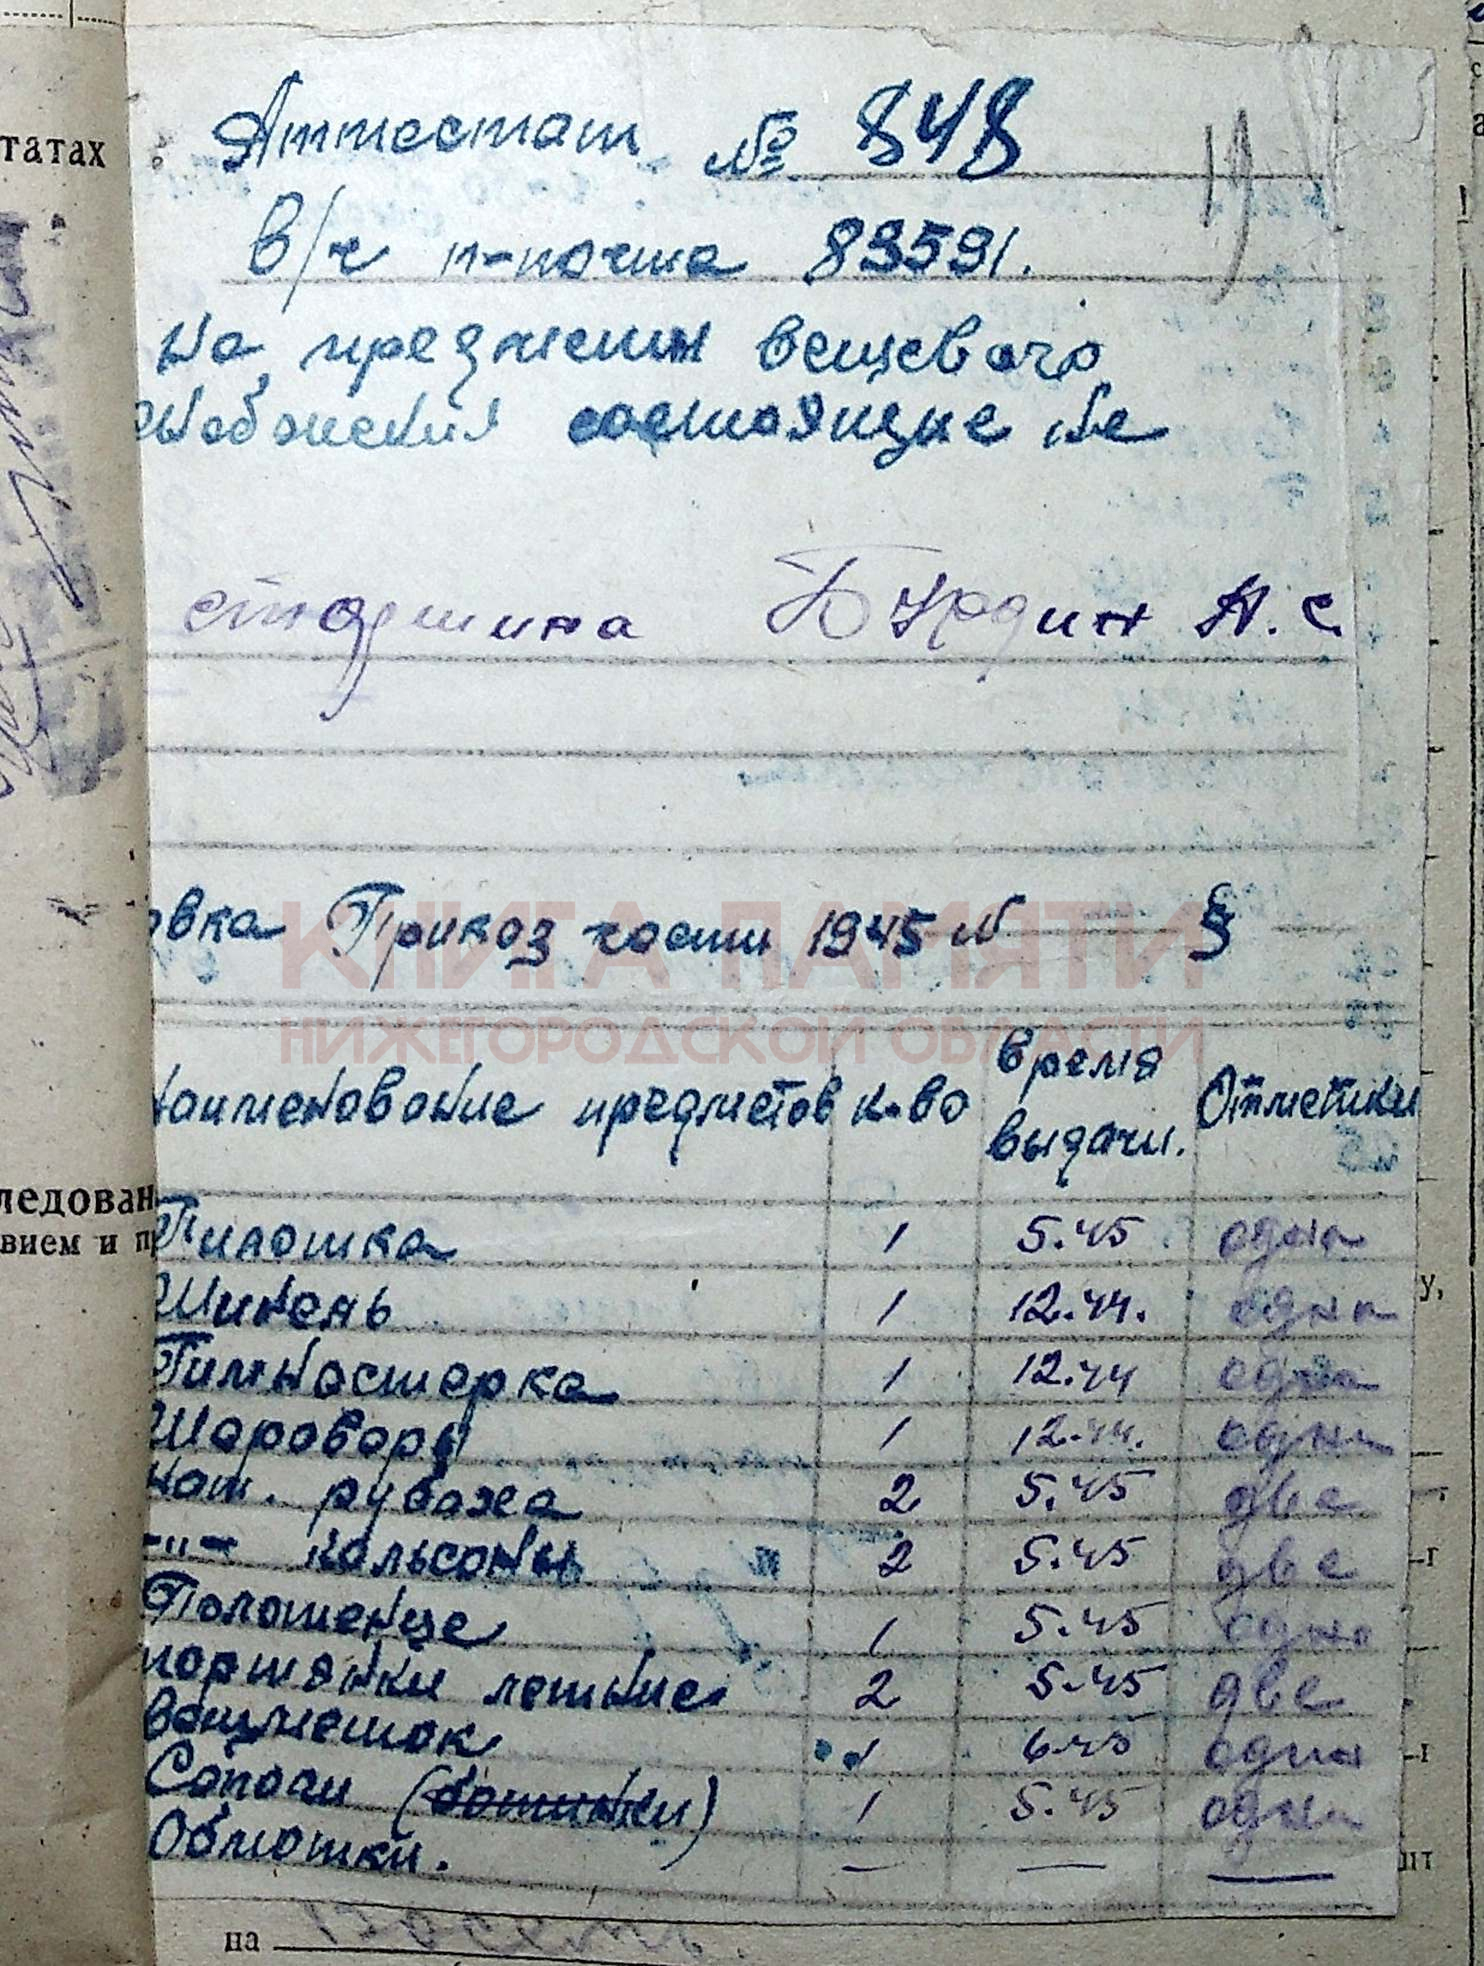 татах
19
Аттестат № 848
в/ч п-почта 83591.
На предмети вещевого
снабжения состоящие на
старшина Бурдин А. С.
овка Приказ части 1945 № §
КНИГА ПАМЯТИ
НИЖЕГОРОДСКОЙ ОБЛАСТИ
Наименование предметов к-во Время выдачи. Отметики
ледован
вием и п
Пилотка 1 5.45 одна
Шинель 1 12.44. одна
Гимнастерка 1 12.44 одна
Шаровары 1 12.44. одни
Нат. рубаха 2 5.45 две
-"- кальсоны 2 5.45 две
Полотенце 1 5.45 одно
портянки летние 2 5.45 две
Вещмешок 1 6.45 один
Сапоги (ботинки) 1 5.45 одни
Обмотки. — — —
на